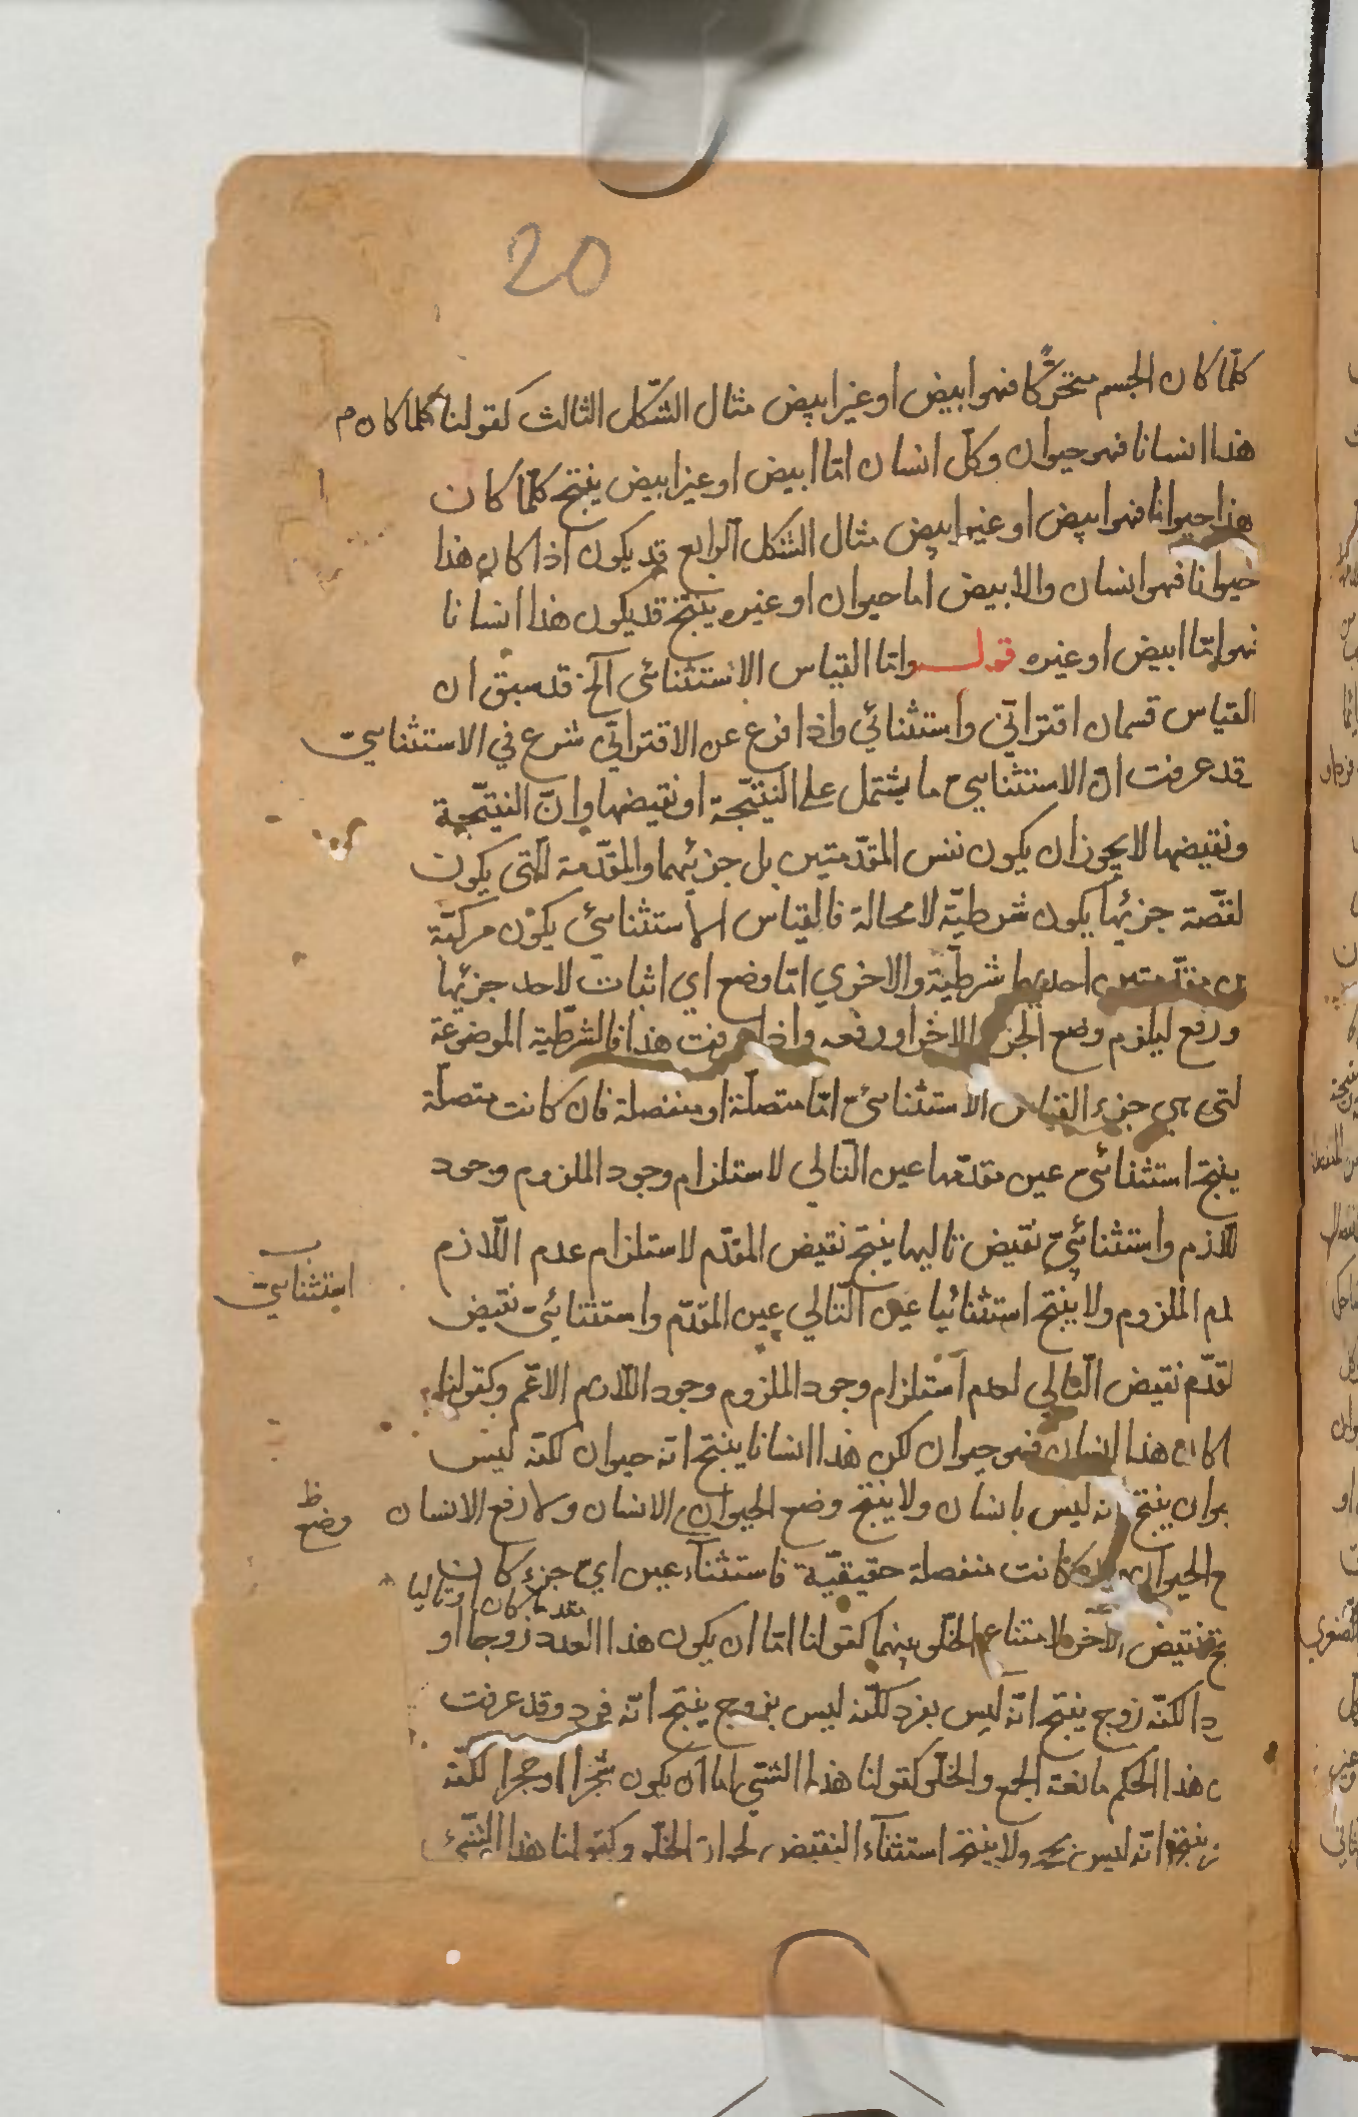 20
كلّما كان الجسم متحرّكا فهو ابيض او غير ابيض مثال الشّكل الثالث كقولنا كلما كان م
هذا انسانا فهو حيوان وكلّ انسان امّا ابيض او غير ابيض ينتج كلّما كان
هذا حيوانا فهو ابيض او غير ابيض مثال الشكل الرابع قد يكون اذا كان هذا
حيوانا فهو انسان والابيض اما حيوان او غيره ينتج قد يكون هذا انسانا
فهو امّا ابيض او غيره قولــه وامّا القياس الاستثنائى آلخ قد سبق ان
القياس قسمان اقترانّي واستثنائي واذا فرغ عن الاقتراني شرع في الاستثنايىّ
قد عرفت انّ الاستثنايى ما يشتمل على النتيّجة او نقيضها وانّ النتيّجة
ونقيضها لا يجوز ان يكون نفس المقدّمتين بل جزئيهما والمقدّمة الّتى يكون
لنتّجة جزئها يكون شرطيّة لا محالة فالقياس الاستثنائي يكون مركبّة
من مقدّمتين احديهما شرطيّة والاخري امّا وضع اي اثبات لاحد جزئيها
ورفع ليلزم وضع الجزء الاخر او رفعه واذا عرفت هذا فالشرطيّة الموضوعة
لتى هى جزء القياس الاستثنائىّ امّا متصلّة او منفصلة فان كانت متصلّة
ينتج استثنائىّ عين مقدّمها عين التّالي لاستلزام وجود الملزوم وجود
للازم واستثنائيّ نقيض تاليها ينتج نقيض المقدّم لاستلزام عدم اللّازم
دم الملزوم ولا ينتج استثنائيا عين التّالي عين المقدّم واستثنايىّ نقيض
لقدّم نقيض التّالي لعدم استلزام وجود الملزوم وجود اللّازم الاعّم وكقولنا
ا كان هذا انسان فهو حيوان لكن هذا انسانا ينتج انّه حيوان لكنّه ليس
يوان ينتج انه ليس بانسان ولا ينتج وضع الحيوان م الانسان ولا رفع الانسان
ع الحيوان كانت منفصلة حقيقيّة فاستثنآء عين ايّ جزء كان
مقدما كان او تاليا
تج نقيض الآخر لامتناع الخلّو بينهما كقولنا امّا ان يكون هذا العدد زوجا او
دا لكنّه زوج ينتج انّه ليس بفرد لكنّه ليس بزوج ينتج انّه فرد وقد عرفت
ن هذا الحكم مانعة الجمع والخلّو كقولنا هذا الشّي اما ان يكون شجرا او حجرا لكنّه
ينتج انّه ليس بحجر ولا ينتج استثنآء النقيض لجواز الخلّو وكقولنا هذا الشّيء
استثنايىّ
ظ
وضع